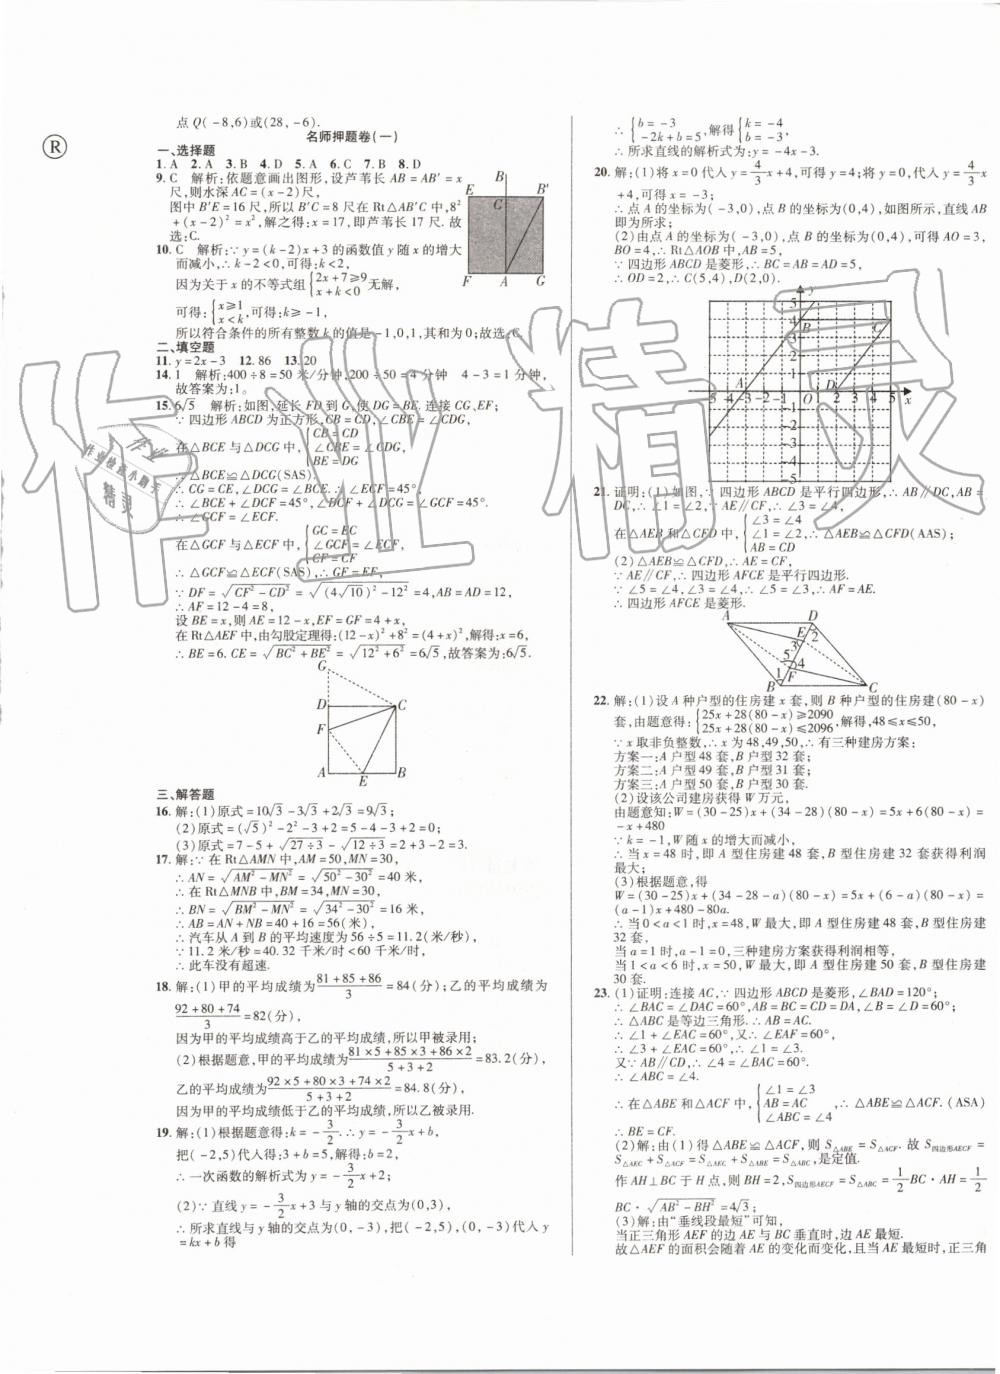 R
点 Q( -8,6)或(28, -6).
名师押题卷(一)
一、选择题
1. A 2. A 3. B 4. D 5. A 6. C 7. B 8. D
9. C 解析:依题意画出图形,设芦苇长 AB = AB′ = x
尺,则水深 AC = (x - 2)尺,
图中 B′E = 16 尺,所以 B′C = 8 尺在 Rt△AB′C 中, 8²
+ (x - 2)² = x²,解之得: x = 17,即芦苇长 17 尺. 故
选:C.
E B B′
C
F A G
10. C 解析:∵ y = (k - 2)x + 3 的函数值 y 随 x 的增大
而减小,∴ k - 2 < 0,可得: k < 2,
因为关于 x 的不等式组{2x + 7 ≥ 9 x + k < 0 无解,
可得:{x ≥ 1 x < k,可得: k < 1,
所以符合条件的所有整数 k 的值是 -1,0,1,其和为 0;故选:C.
二、填空题
11. y = 2x - 3 12. 86 13. 20
14. 1 解析:400 ÷ 8 = 50 米/分钟,200 ÷ 50 = 4 分钟 4 - 3 = 1 分钟.
故答案为:1。
15. 6√5 解析:如图,延长 FD 到 G,使 DG = BE. 连接 CG,EF;
∵ 四边形 ABCD 为正方形, CB = CD, ∠CBE = ∠CDG,
在 △BCE 与 △DCG 中, {CB = CD ∠CBE = ∠CDG BE = DG
∴ △BCE ≌ △DCG(SAS).
∴ CG = CE, ∠DCG = ∠BCE. ∴ ∠ECF = 45°.
∴ ∠BCE + ∠DCF = 45°, ∠DCF + ∠DCG = ∠GCF = 45°.
∴ ∠GCF = ∠ECF.
在 △GCF 与 △ECF 中, {GC = EC ∠GCF = ∠ECF CF = CF
∴ △GCF ≌ △ECF(SAS), ∴ GF = EF,
∵ DF = √CF² - CD² = √(4√10)² - 12² = 4,AB = AD = 12,
∴ AF = 12 - 4 = 8,
设 BE = x,则 AE = 12 - x,EF = GF = 4 + x,
在 Rt△AEF 中,由勾股定理得:(12 - x)² + 8² = (4 + x)²,解得: x = 6,
∴ BE = 6. CE = √BC² + BE² = √12² + 6² = 6√5,故答案为:6√5.
G
D C
F
A E B
三、解答题
16. 解:(1)原式 = 10√3 - 3√3 + 2√3 = 9√3;
(2)原式 = (√5)² - 2² - 3 + 2 = 5 - 4 - 3 + 2 = 0;
(3)原式 = 7 - 5 + √27 ÷ 3 - √12 ÷ 3 = 2 + 3 - 2 = 3.
17. 解:∵ 在 Rt△AMN 中,AM = 50,MN = 30,
∴ AN = √AM² - MN² = √50² - 30² = 40 米,
∵ 在 Rt△MNB 中,BM = 34,MN = 30,
∴ BN = √BM² - MN² = √34² - 30² = 16 米,
∴ AB = AN + NB = 40 + 16 = 56(米),
∴ 汽车从 A 到 B 的平均速度为 56 ÷ 5 = 11.2(米/秒),
∵ 11.2 米/秒 = 40.32 千米/时 < 60 千米/时,
∴ 此车没有超速.
18. 解:(1)甲的平均成绩为 81 + 85 + 86 / 3 = 84(分);乙的平均成绩为
92 + 80 + 74 / 3 = 82(分),
因为甲的平均成绩高于乙的平均成绩,所以甲被录用;
(2)根据题意,甲的平均成绩为 81 × 5 + 85 × 3 + 86 × 2 / 5 + 3 + 2 = 83.2(分),
乙的平均成绩为 92 × 5 + 80 × 3 + 74 × 2 / 5 + 3 + 2 = 84.8(分),
因为甲的平均成绩低于乙的平均成绩,所以乙被录用.
19. 解:(1)根据题意得: k = - 3/2. ∴ y = - 3/2 x + b,
把( -2,5)代入得:3 + b = 5,解得: b = 2,
∴ 一次函数的解析式为 y = - 3/2 x + 2;
(2)∵ 直线 y = - 3/2 x + 3 与 y 轴的交点为(0,3),
∴ 所求直线与 y 轴的交点为(0, -3),把( -2,5),(0, -3)代入 y
= kx + b 得
∴ {b = -3 -2k + b = 5,解得{k = -4 b = -3,
∴ 所求直线的解析式为: y = -4x - 3;
20. 解:(1)将 x = 0 代入 y = 4/3 x + 4,可得 y = 4;将 y = 0,代入 y = 4/3 x
+ 4,可得 x = -3;
∴ 点 A 的坐标为( -3,0),点 B 的坐标为(0,4),如图所示,直线 AB
即为所求;
(2)由点 A 的坐标为( -3,0),点 B 的坐标为(0,4),可得 AO = 3,
BO = 4,∴ Rt△AOB 中,AB = 5,
∵ 四边形 ABCD 是菱形,∴ BC = AB = AD = 5,
∴ OD = 2,∴ C(5,4),D(2,0).
y
5
4 B C
3
2
1
A D
-5 -4 -3 -2 -1 O 1 2 3 4 5 x
-1
-2
-3
-4
-5
21. 证明:(1)如图,∵ 四边形 ABCD 是平行四边形,∴ AB∥DC,AB =
DC,∴ ∠1 = ∠2,∵ AE∥CF,∴ ∠3 = ∠4,
在 △AEB 与 △CFD 中, {∠3 = ∠4 ∠1 = ∠2 AB = CD ∴ △AEB ≌ △CFD(AAS);
(2)∵ △AEB ≌ △CFD,∴ AE = CF,
∵ AE∥CF,∴ 四边形 AFCE 是平行四边形.
∵ ∠5 = ∠4,∠3 = ∠4,∴ ∠5 = ∠3. ∴ AF = AE.
∴ 四边形 AFCE 是菱形.
A D
E 2
3
5
4
1 F
B C
22. 解:(1)设 A 种户型的住房建 x 套,则 B 种户型的住房建(80 - x)
套,由题意得:{25x + 28(80 - x) ≥ 2090 25x + 28(80 - x) ≤ 2096,解得,48 ≤ x ≤ 50,
∵ x 取非负整数,∴ x 为 48,49,50,∴ 有三种建房方案:
方案一:A 户型 48 套,B 户型 32 套;
方案二:A 户型 49 套,B 户型 31 套;
方案三:A 户型 50 套,B 户型 30 套.
(2)设该公司建房获得 W 万元,
由题意知: W = (30 - 25)x + (34 - 28)(80 - x) = 5x + 6(80 - x) =
- x + 480
∵ k = -1,W 随 x 的增大而减小,
∴ 当 x = 48 时,即 A 型住房建 48 套,B 型住房建 32 套获得利润
最大;
(3)根据题意,得
W = (30 - 25)x + (34 - 28 - a)(80 - x) = 5x + (6 - a)(80 - x) =
(a - 1)x + 480 - 80a.
∴ 当 0 < a < 1 时, x = 48,W 最大,即 A 型住房建 48 套,B 型住房建
32 套,
当 a = 1 时, a - 1 = 0,三种建房方案获得利润相等,
当 1 < a < 6 时, x = 50,W 最大,即 A 型住房建 50 套,B 型住房建
30 套.
23. (1)证明:连接 AC,∵ 四边形 ABCD 是菱形,∠BAD = 120°;
∴ ∠BAC = ∠DAC = 60°,AB = BC = CD = DA,∠B = ∠D = 60°,
∴ △ABC 是等边三角形. ∴ AB = AC.
∴ ∠1 + ∠EAC = 60°,又∴ ∠EAF = 60°.
∴ ∠3 + ∠EAC = 60°,∴ ∠1 = ∠3.
又∵ AB∥CD,∴ ∠4 = 60°.
∴ ∠ABC = ∠4.
∴ 在 △ABE 和 △ACF 中, {∠1 = ∠3 AB = AC ∠ABC = ∠4 ∴ △ABE ≌ △ACF. (ASA)
∴ BE = CF.
(2)解:由(1)得 △ABE ≌ △ACF,则 S△ABE = S△ACF. 故 S四边形AECF =
S△AEC + S△ACF = S△AEC + S△ABE = S△ABC,是定值.
作 AH⊥BC 于 H 点,则 BH = 2,S四边形AECF = S△ABC = 1/2 BC · AH = 1/2
BC · √AB² - BH² = 4√3;
(3)解:由“垂线段最短”可知,
当正三角形 AEF 的边 AE 与 BC 垂直时,边 AE 最短.
故△AEF 的面积会随着 AE 的变化而变化,且当 AE 最短时,正三角
作业精灵